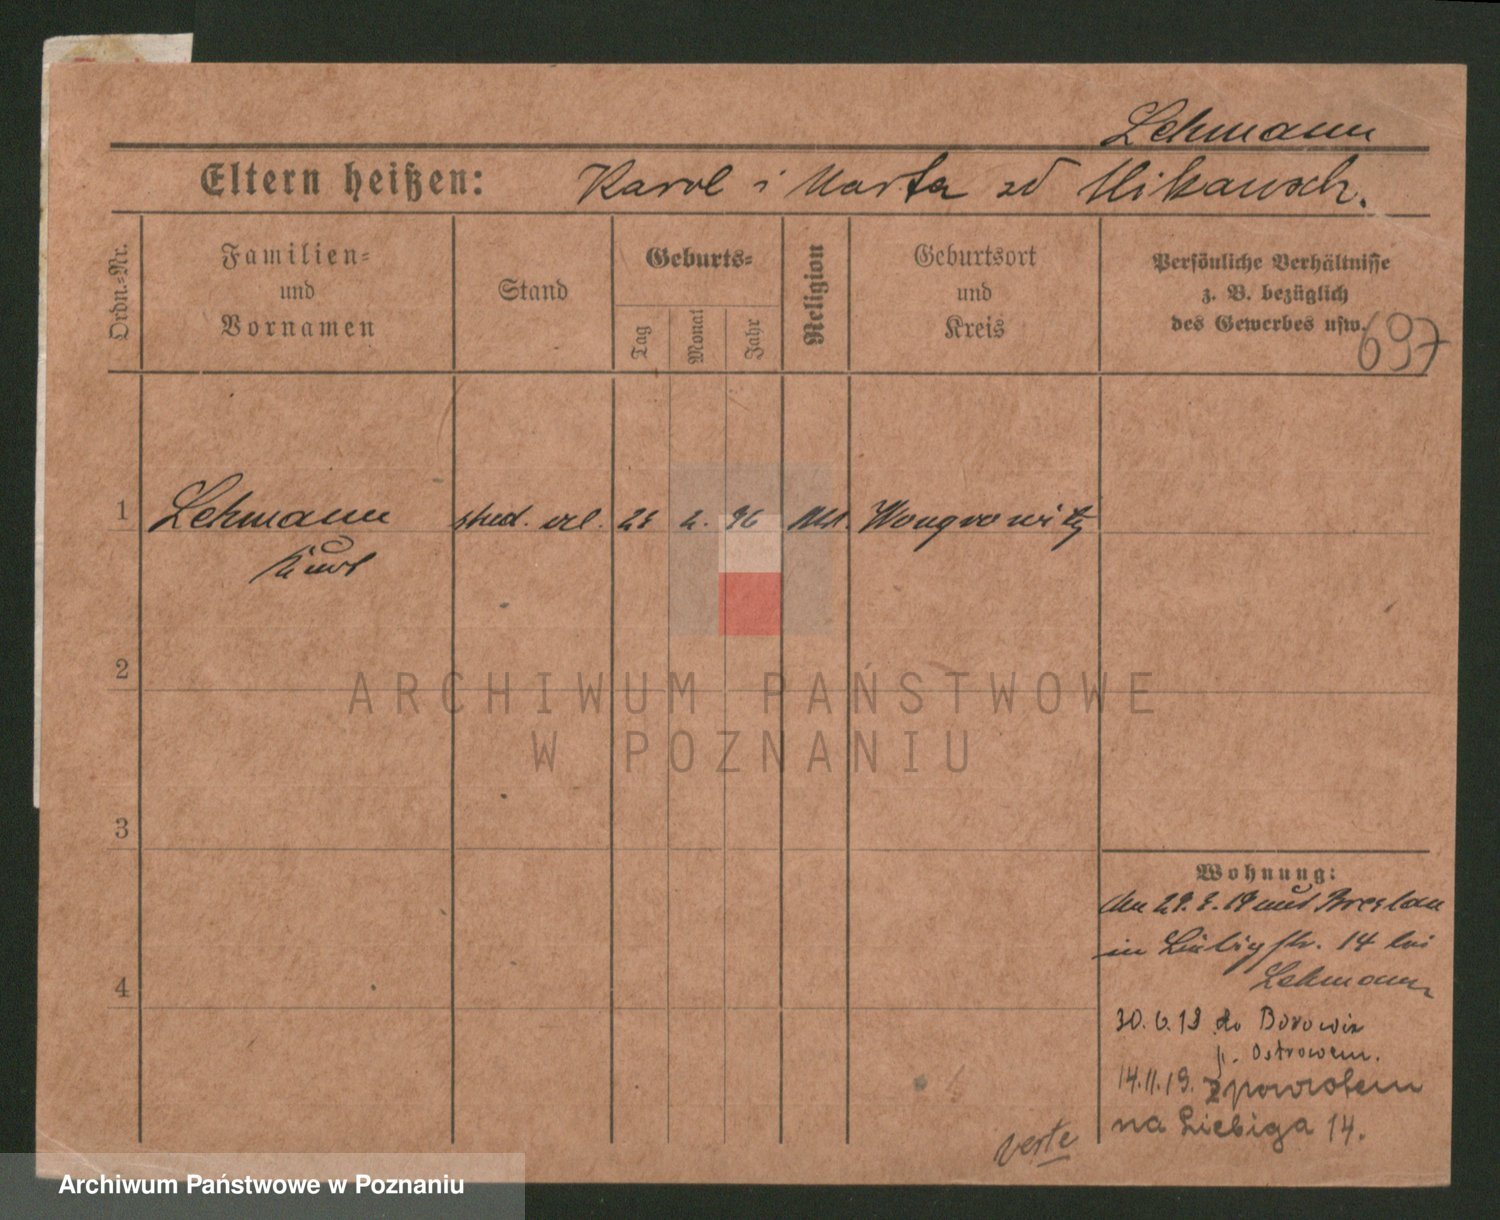 Lehmann
Eltern heißen: Karol i Marta zd Mikausch.
Ordn.-Nr.
Familien-
und
Vornamen
Stand
Geburts-
Tag
Monat
Jahr
Religion
Geburtsort
und
Kreis
Persönliche Verhältnisse
z. B. bezüglich
des Gewerbes usw.
697
1 Lehmann stud. 2. 96 Wongrowitz
Kurt
2
ARCHIWUM PAŃSTWOWE
W POZNANIU
3
4
Wohnung:
aus Breslau
in Liebigstr. 14 bei
Lehmann
30.6.19 do
p. Ostrowem.
14.11.19. z powrotem
na Liebiga 14.
verte
Archiwum Państwowe w Poznaniu